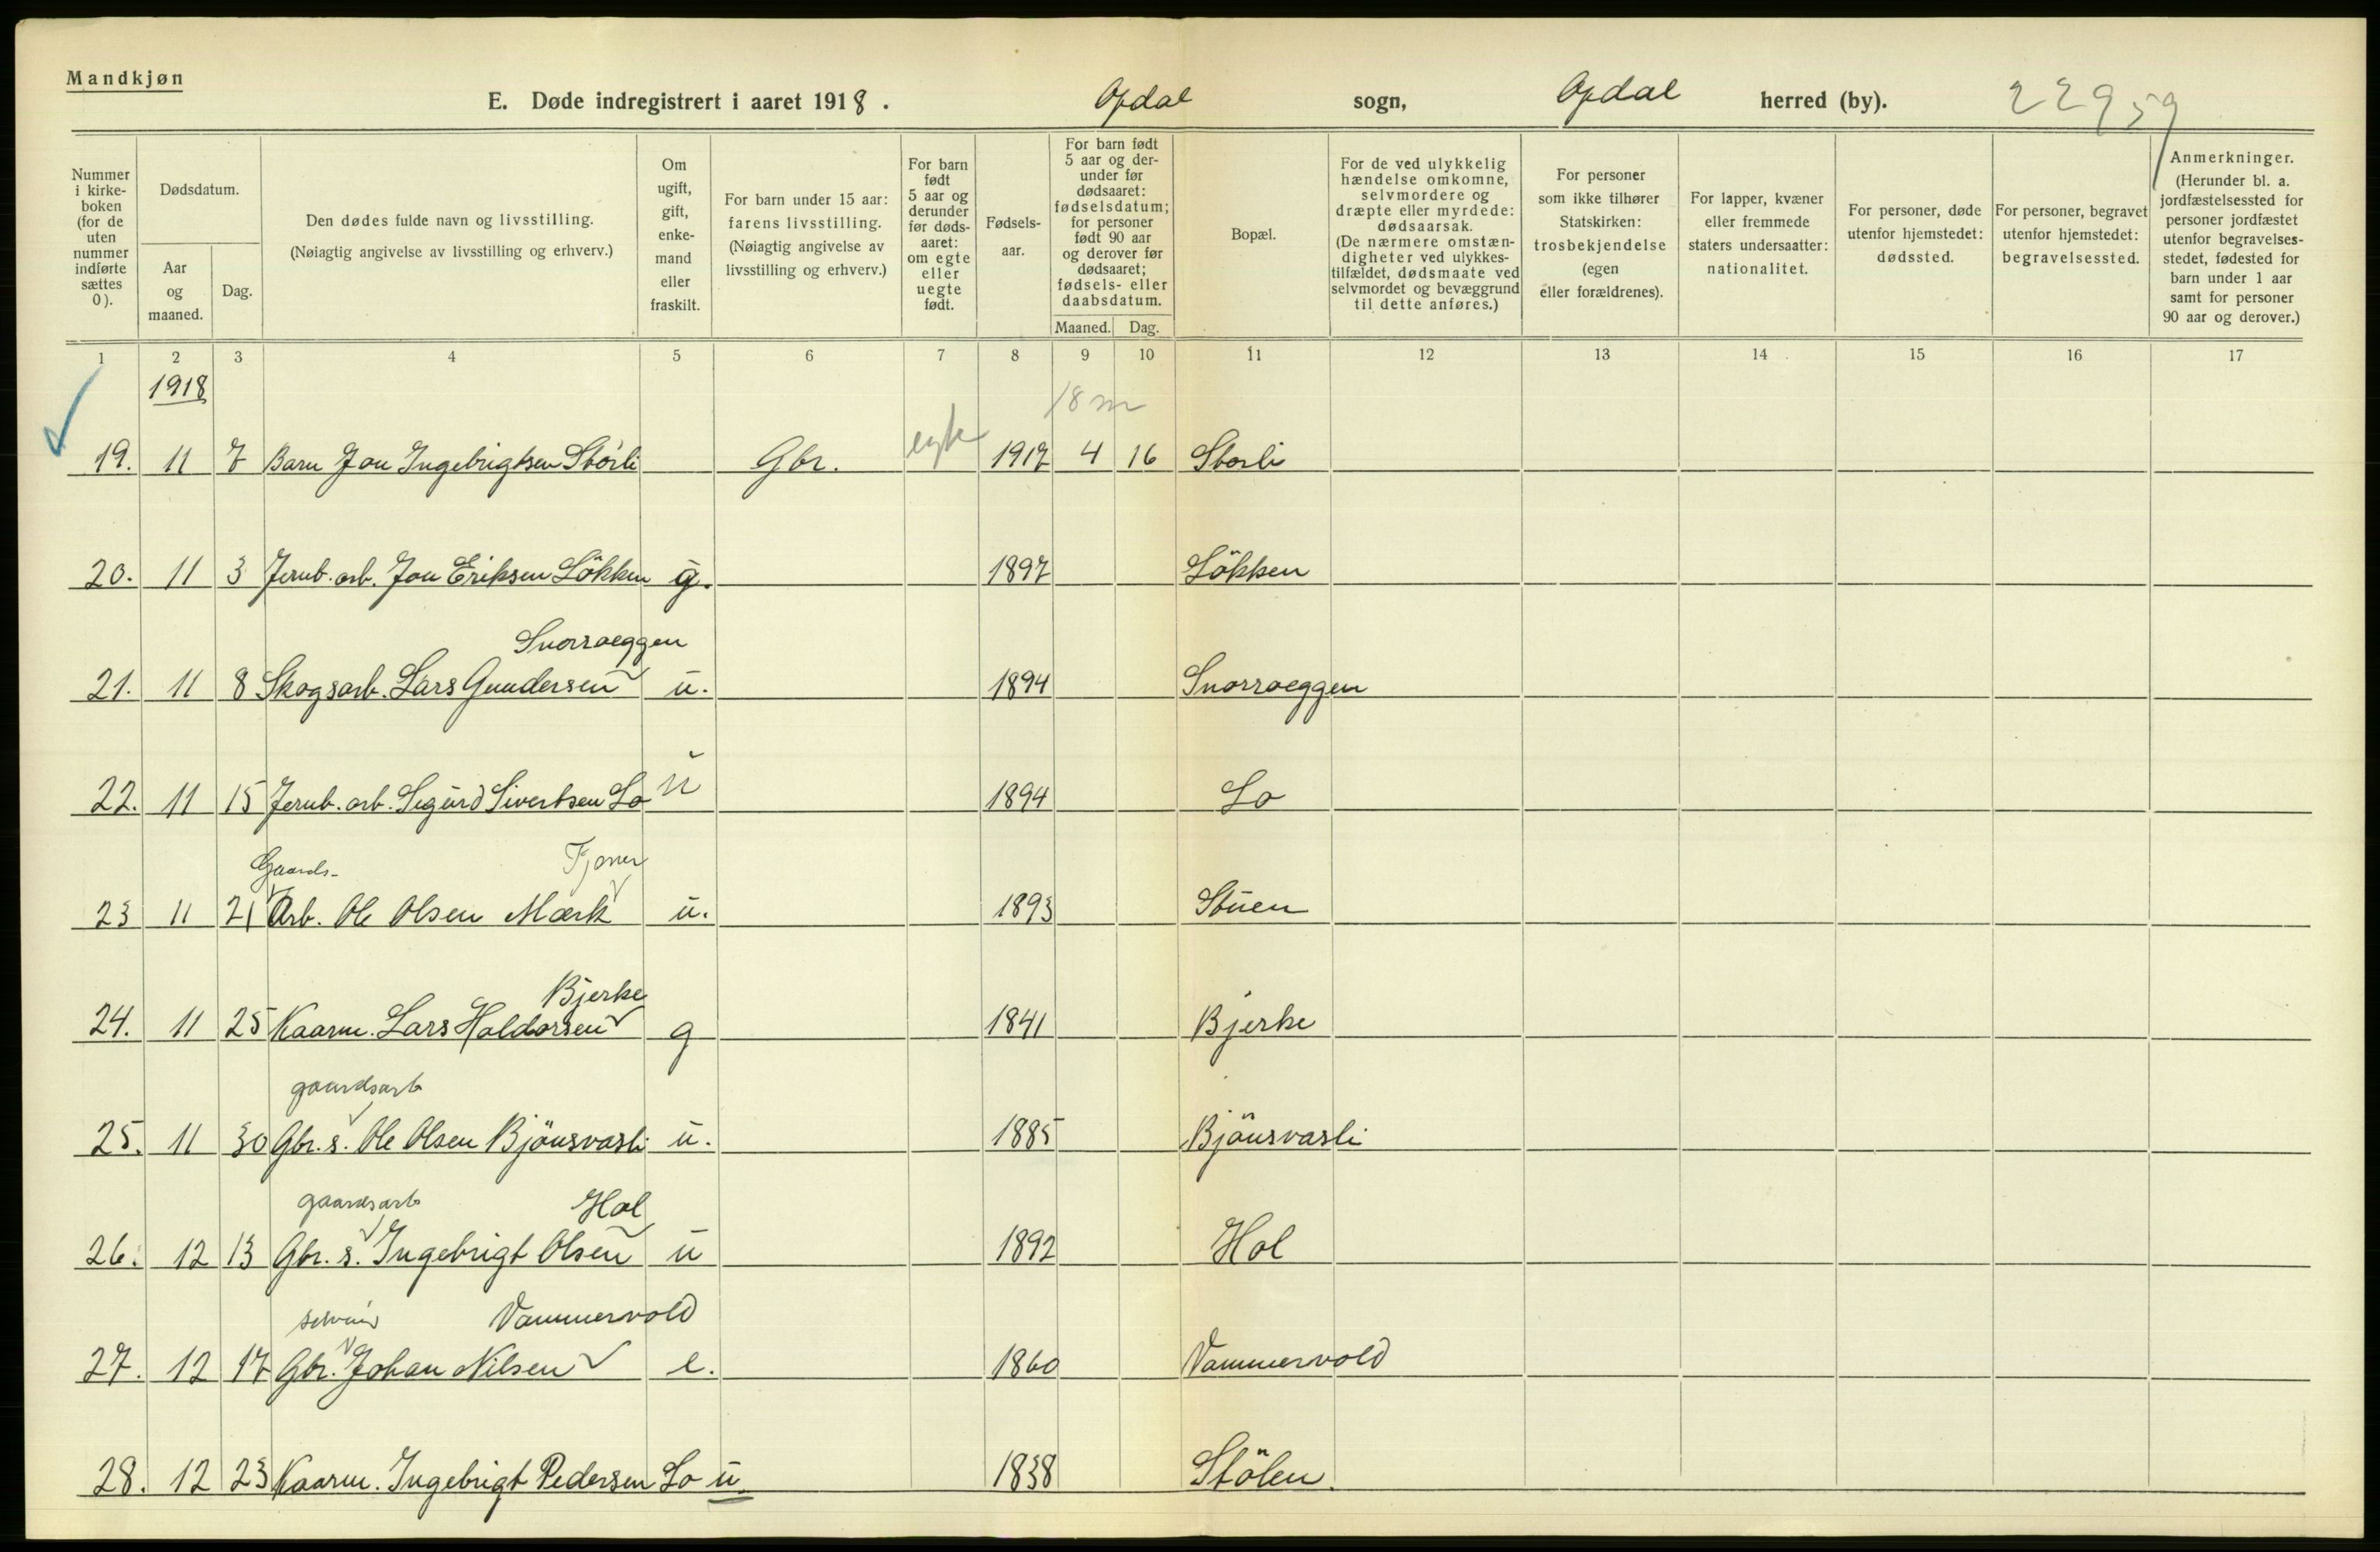 Mandkjøn
E. Døde indregistrert i aaret 1918. Opdal sogn, Opdal herred (by). 22959
Nummer i kirke-boken (for de uten nummer indførte sættes 0).
Dødsdatum.
Aar og maaned.
Dag.
Den dødes fulde navn og livsstilling.
(Nøiagtig angivelse av livsstilling og erhverv.)
Om ugift, gift, enke-mand eller fraskilt.
For barn under 15 aar: farens livsstilling. (Nøiagtig angivelse av livsstilling og erhverv.)
For barn født 5 aar og derunder før døds-aaret: om egte eller uegte født.
Fødsels-aar.
For barn født 5 aar og der-under før dødsaaret: fødselsdatum; for personer født 90 aar og derover før dødsaaret; fødsels- eller daabsdatum.
Maaned. Dag.
Bopæl.
For de ved ulykkelig hændelse omkomne, selvmordere og dræpte eller myrdede: dødsaarsak. (De nærmere omstæn-digheter ved ulykkes-tilfældet, dødsmaate ved selvmordet og bevæggrund til dette anføres.)
For personer som ikke tilhører Statskirken: trosbekjendelse (egen eller forældrenes).
For lapper, kvæner eller fremmede staters undersaatter: nationalitet.
For personer, døde utenfor hjemstedet: dødssted.
For personer, begravet utenfor hjemstedet: begravelsessted.
Anmerkninger. (Herunder bl. a. jordfæstelsessted for personer jordfæstet utenfor begravelses-stedet, fødested for barn under 1 aar samt for personer 90 aar og derover.)
1 2 3 4 5 6 7 8 9 10 11 12 13 14 15 16 17
1918
18 m
19. 11 7 Barn Jon Ingebrigtsen Storli Gbr. egte 1917 4 16 Storli
20. 11 3 Jernb. arb. Jon Eriksen Lökken g. 1897 Lökken
Snorroeggen
21. 11 8 Skogsarb. Lars Gundersen u. 1894 Snorroeggen
22. 11 15 Jernb. arb. Sigurd Sivertsen Lo u 1894 Lo
Gaards-
23 11 21 Arb. Ole Olsen Mærk u. 1893 Stuen
Bjerke
24. 11 25 Kaarm. Lars Haldorsen g 1841 Bjerke
gaardsarb
25. 11 30 Gbr. s. Ole Olsen Bjönsvasli u. 1885 Bjönsvasli
gaardsarb Hol
26. 12 13 Gbr. s. Ingebrigt Olsen u 1892 Hol
Vammervold
27. 12 17 Gbr. Johan Nilsen e. 1860 Vammervold
28. 12 23 Kaarm. Ingebrigt Pedersen Lo u. 1838 Stölen.